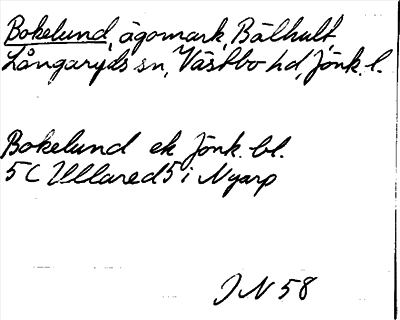 Bokelund, ägomark, Bälhult,
Långaryds sn, Västbo hd, Jönk. l.
Bokelund ek Jönk. bl.
5 C Ullared 5 i Nyarp
J N 58